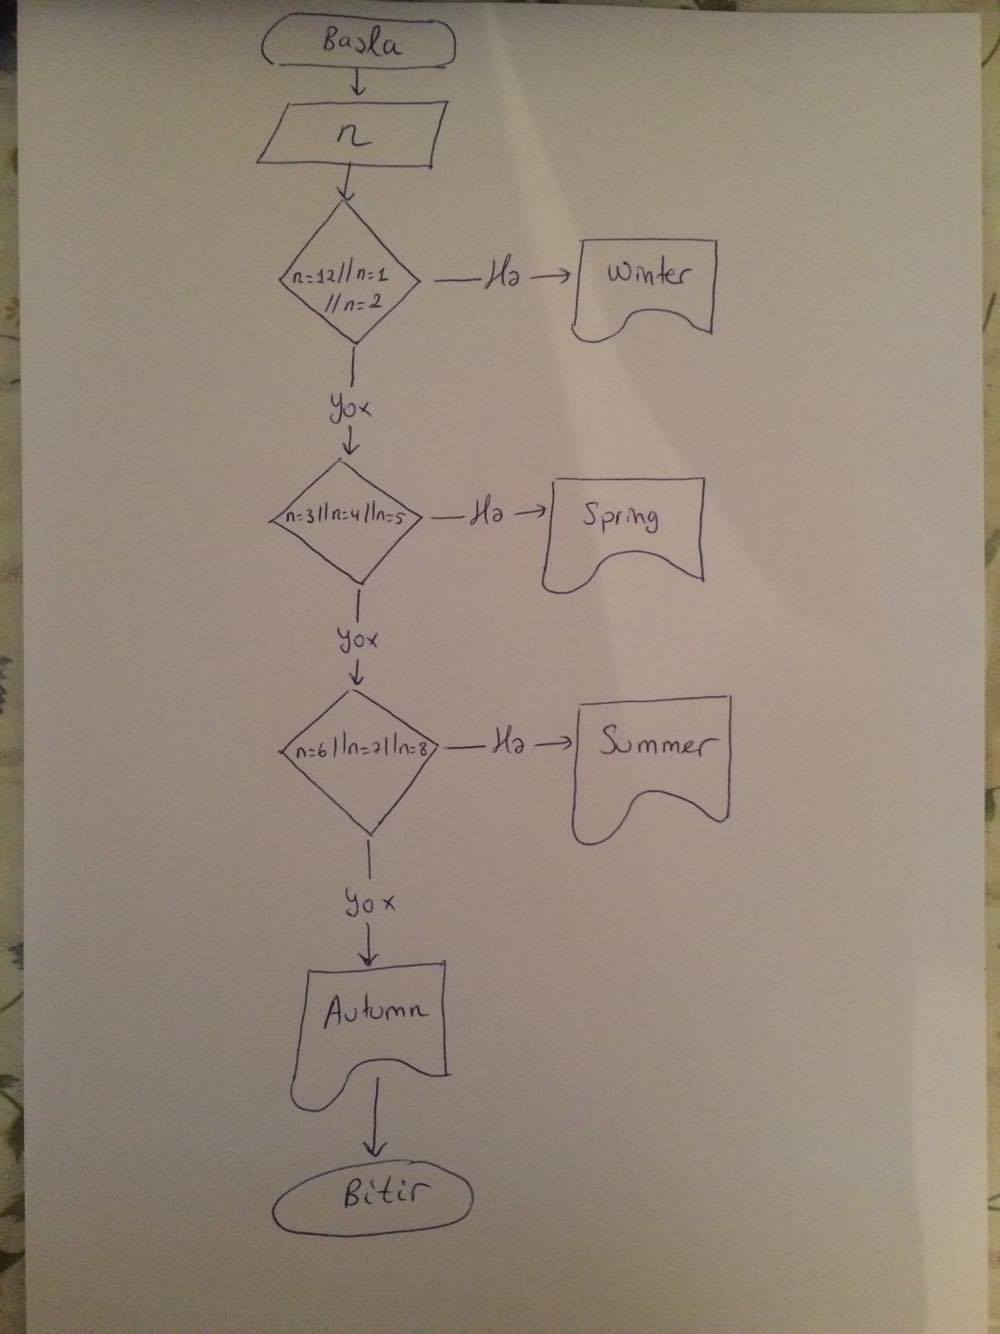 Başla
n
n=12//n=1
//n=2
Hə
Winter
Yox
n=3//n=4//n=5
Hə
Spring
Yox
n=6//n=7//n=8
Hə
Summer
Yox
Autumn
Bitir